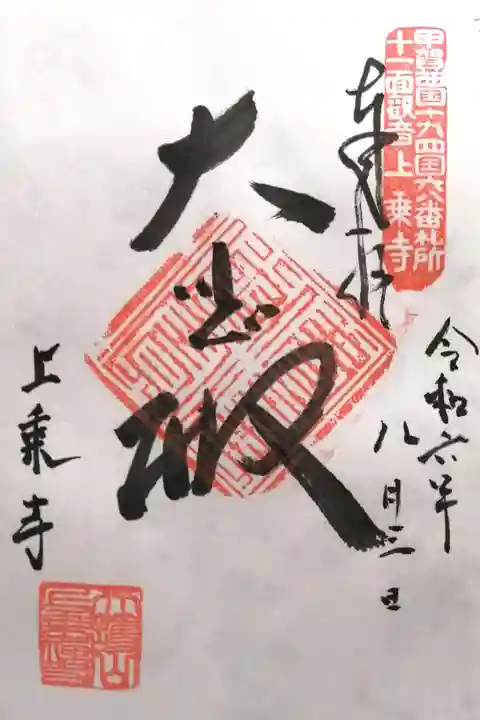 甲賀西国十八四国六番札所
十一面観音上乗寺
奉拝
大悲殿
令和六年
八月三日
上乗寺